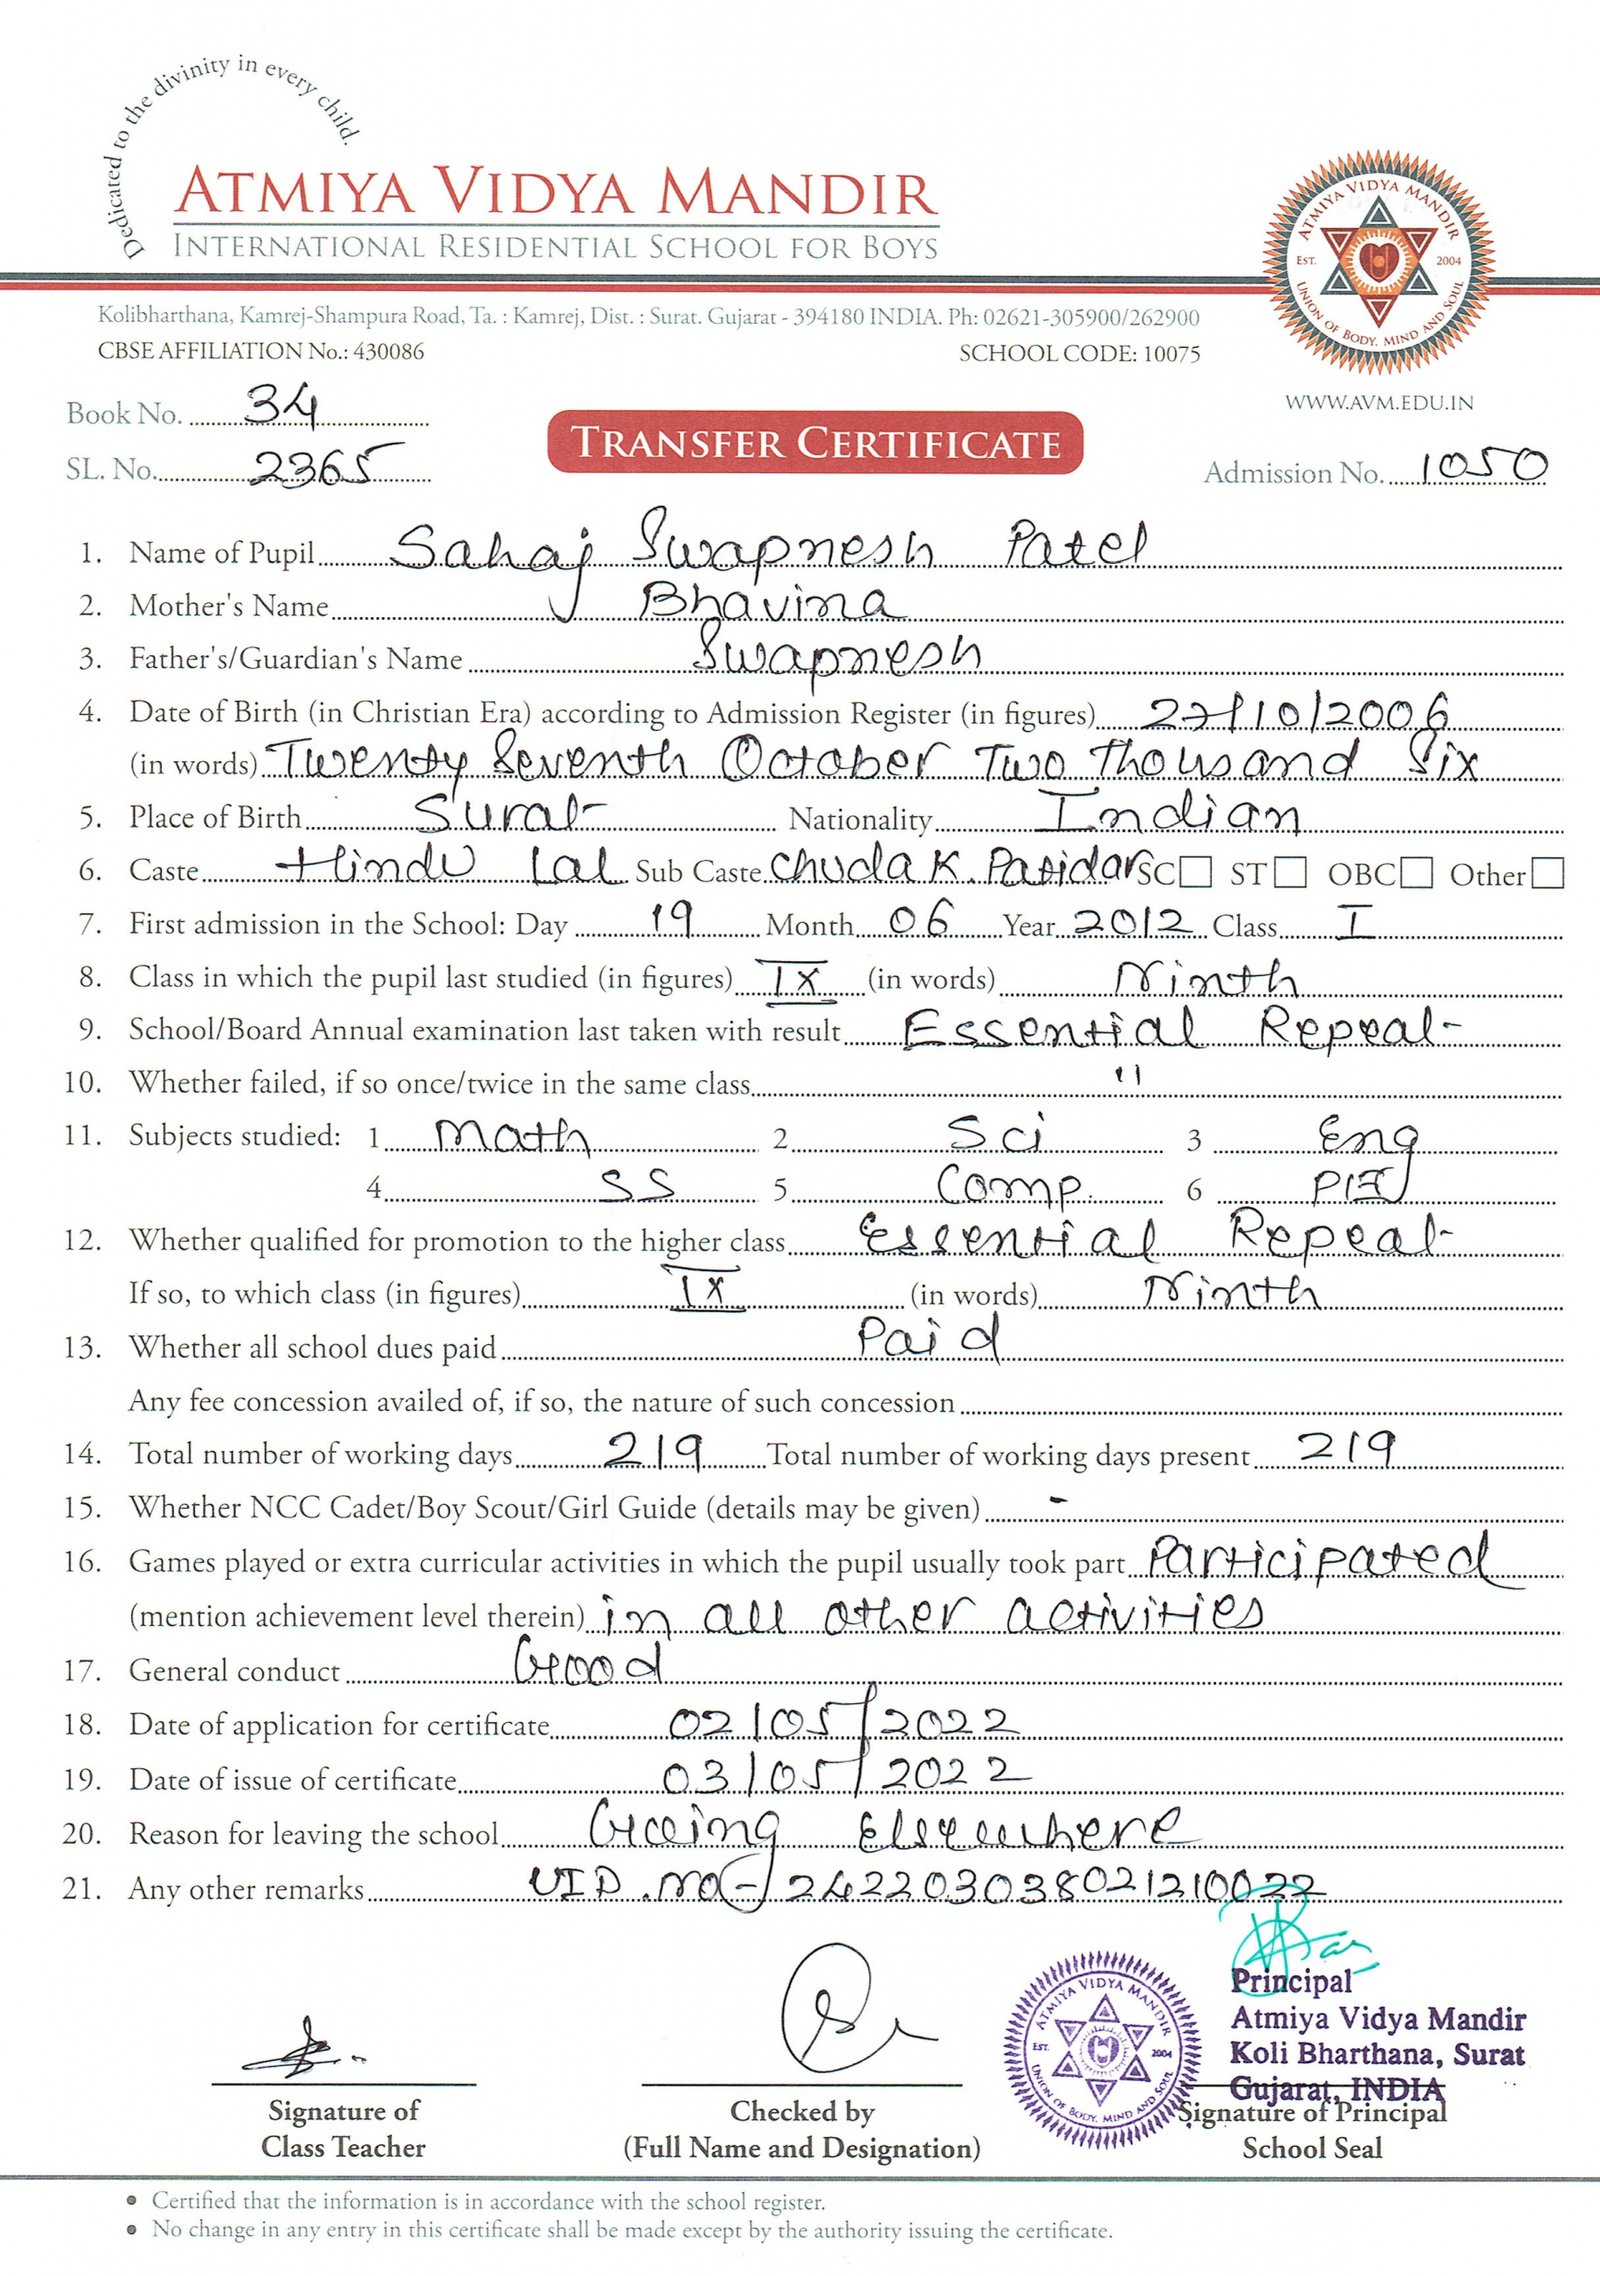 Dedicated to the divinity in every child.
ATMIYA VIDYA MANDIR
INTERNATIONAL RESIDENTIAL SCHOOL FOR BOYS
ATMIYA VIDYA MANDIR
EST. 2004
UNION OF BODY, MIND AND SOUL
Kolibharthana, Kamrej-Shampura Road, Ta. : Kamrej, Dist. : Surat. Gujarat - 394180 INDIA. Ph: 02621-305900/262900
CBSE AFFILIATION No.: 430086 SCHOOL CODE: 10075
WWW.AVM.EDU.IN
Book No. 34
TRANSFER CERTIFICATE
SL. No. 2365 Admission No. 1050
1. Name of Pupil Sahaj Swapnesh Patel
2. Mother's Name Bhavina
3. Father's/Guardian's Name Swapnesh
4. Date of Birth (in Christian Era) according to Admission Register (in figures) 27/10/2006
(in words) Twenty Seventh October Two Thousand Six
5. Place of Birth Surat Nationality Indian
6. Caste Hindu Lal Sub Caste Chuda K. Patidar SC ST OBC Other
7. First admission in the School: Day 19 Month 06 Year 2012 Class I
8. Class in which the pupil last studied (in figures) IX (in words) Ninth
9. School/Board Annual examination last taken with result Essential Repeat
10. Whether failed, if so once/twice in the same class "
11. Subjects studied: 1 Math 2 Sci 3 Eng
4 SS 5 Comp. 6 PIE
12. Whether qualified for promotion to the higher class Essential Repeat
If so, to which class (in figures) IX (in words) Ninth
13. Whether all school dues paid Paid
Any fee concession availed of, if so, the nature of such concession
14. Total number of working days 219 Total number of working days present 219
15. Whether NCC Cadet/Boy Scout/Girl Guide (details may be given) -
16. Games played or extra curricular activities in which the pupil usually took part Participated
(mention achievement level therein) in all other activities
17. General conduct Good
18. Date of application for certificate 02/05/2022
19. Date of issue of certificate 03/05/2022
20. Reason for leaving the school Going Elsewhere
21. Any other remarks UID. no - 242203038021210022
Principal
Atmiya Vidya Mandir
Koli Bharthana, Surat
Gujarat, INDIA
ATMIYA VIDYA MANDIR
EST. 2004
UNION OF BODY, MIND AND SOUL
Signature of Checked by Signature of Principal
Class Teacher (Full Name and Designation) School Seal
• Certified that the information is in accordance with the school register.
• No change in any entry in this certificate shall be made except by the authority issuing the certificate.